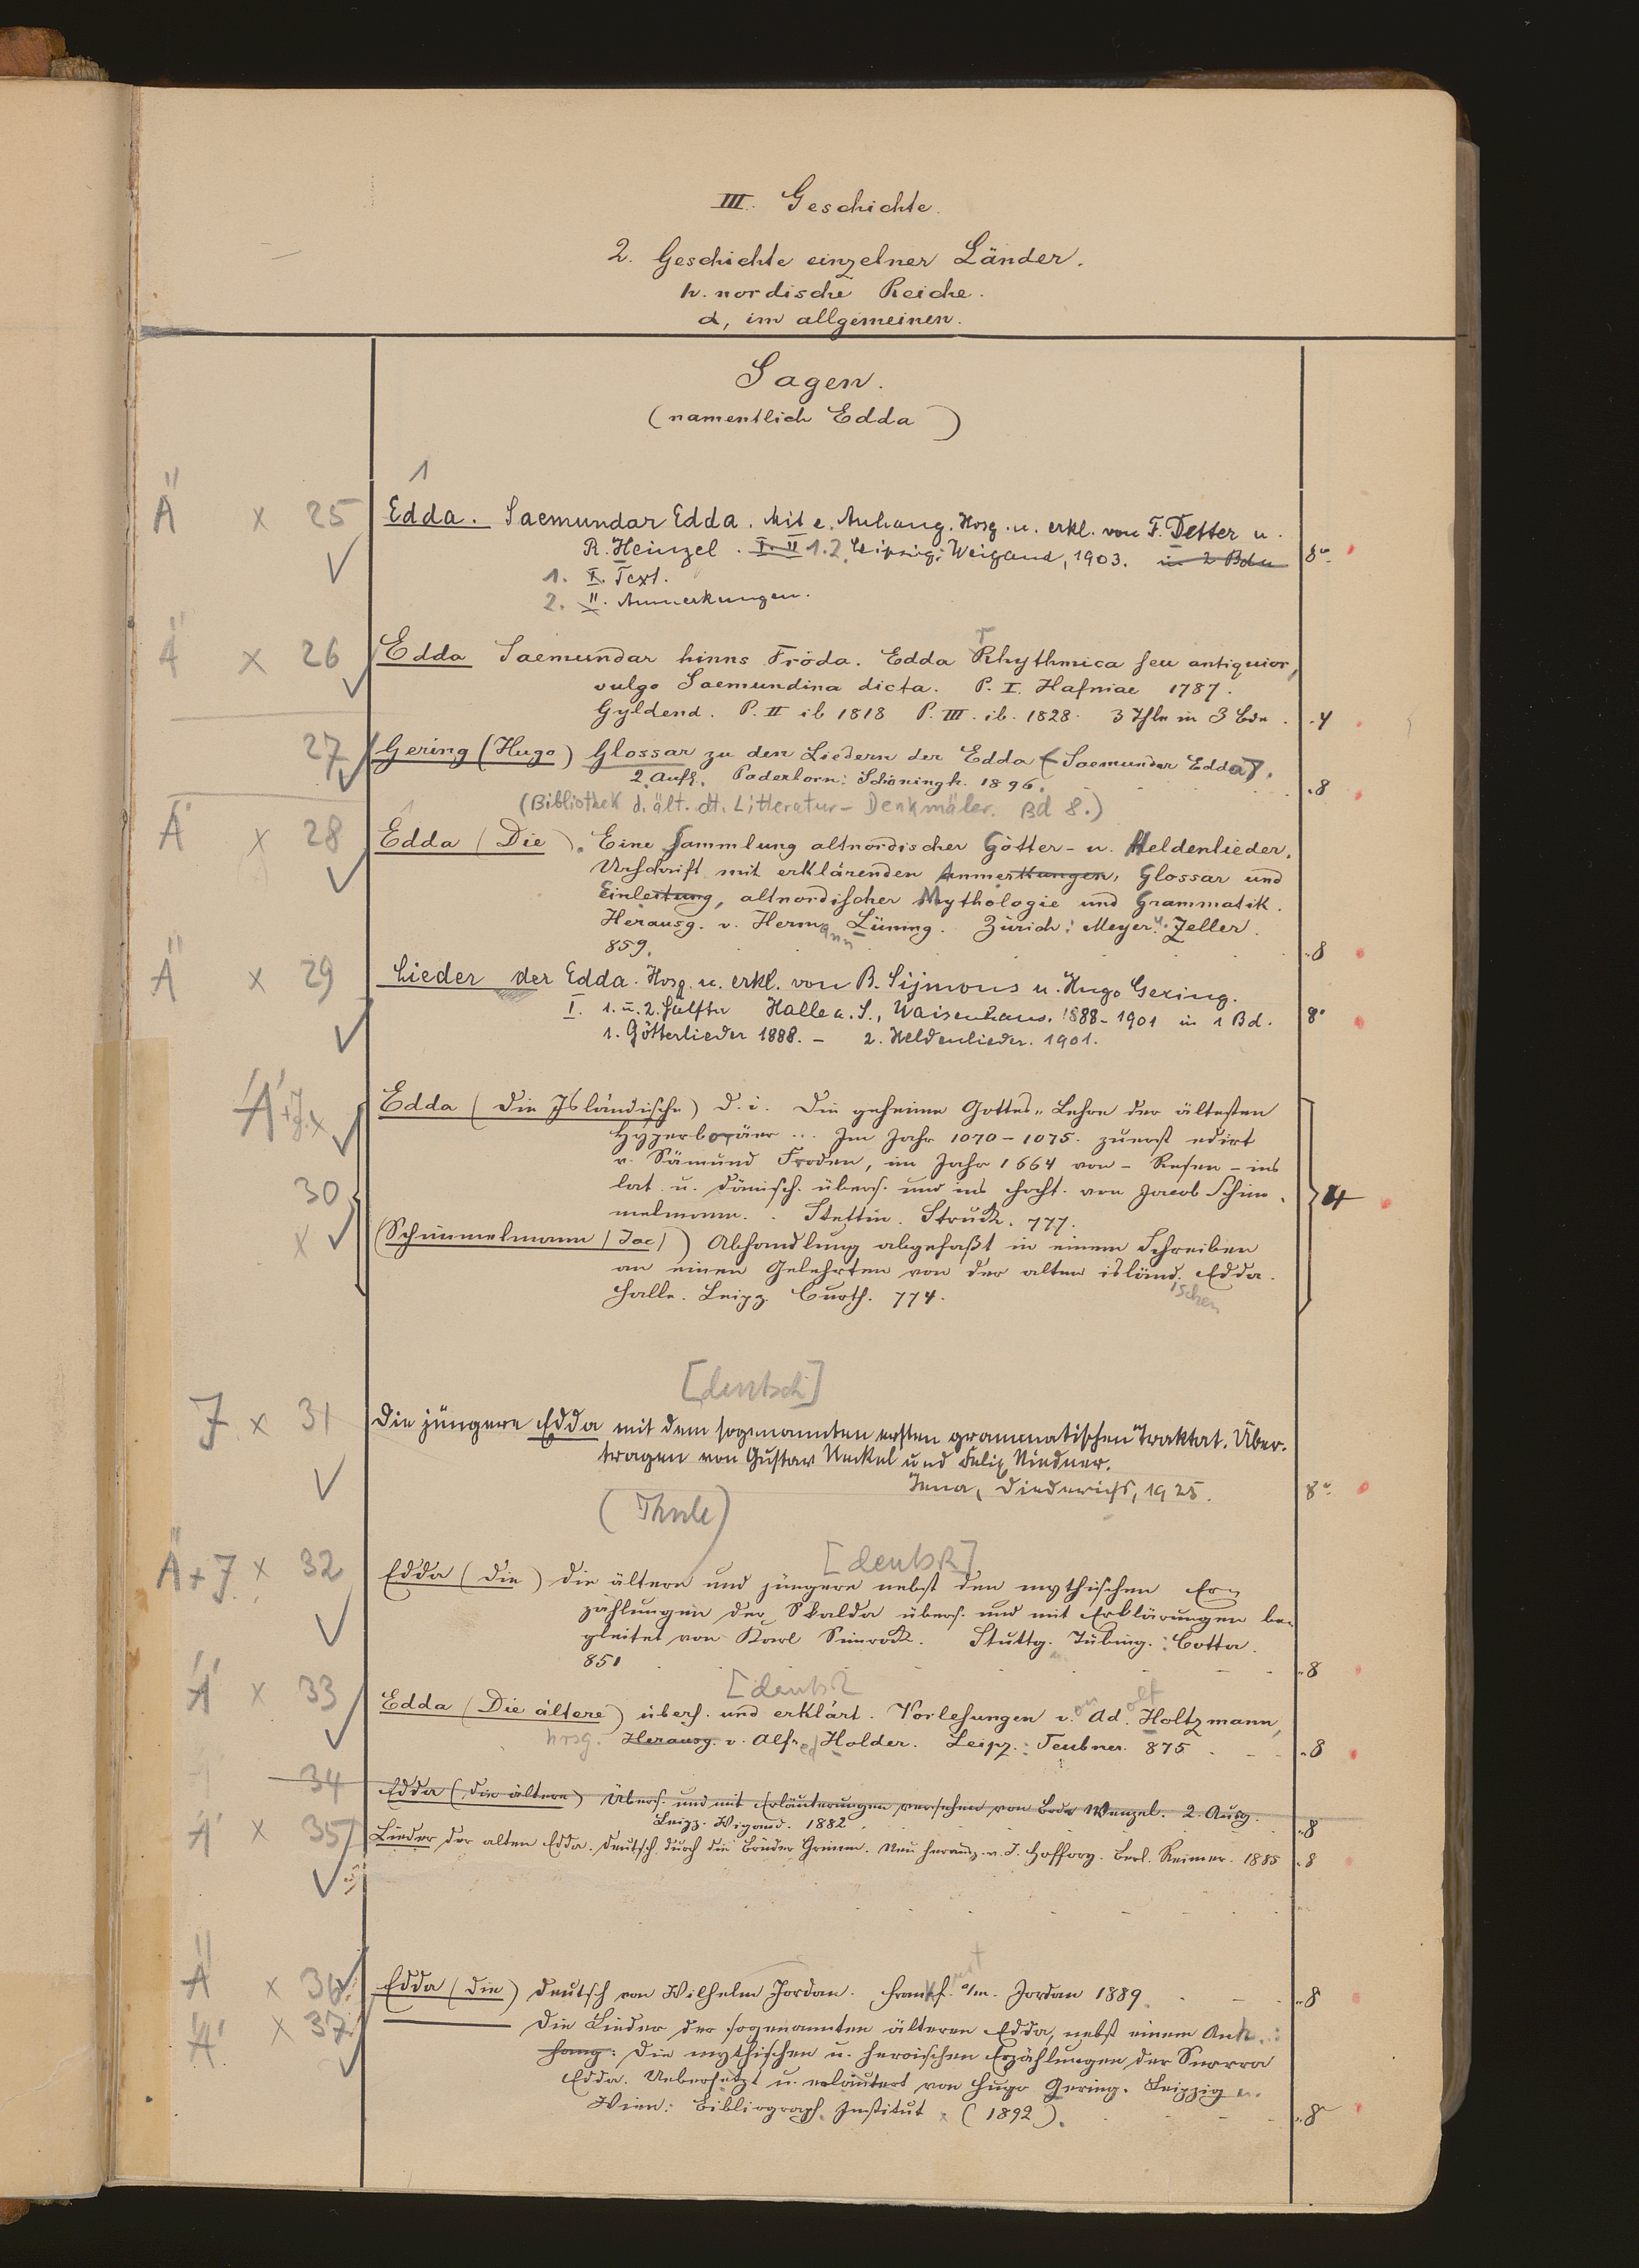 III. Geschichte.
2. Geschichte einzelner Länder.
h. nordische Reiche.
d, im allgemeinen.
Sagen.
(namentlich Edda)
1
Ä x 25 Edda. Saemundar Edda. Mit e. Anhang. Hrsg. u. erkl. von F. Detter u.
R. Heinzel. I. II 1.2. Leipzig: Weigand, 1903. in 2 Bdn 8°
1. I. Text.
2. II. Anmerkungen.
Ä x 26 Edda Saemundar hinns Fróda. Edda Rhythmica seu antiquior,
vulgo Saemundina dicta. P. I. Hafniae 1787.
Gyldend. P. II ib 1818 P. III. ib. 1828. 3 Thle in 3 Bdn. 4
27 Gering (Hugo) Glossar zu den Liedern der Edda (Saemundar Edda).
2. Aufl. Paderborn: Schöningh. 1896. 8
(Bibliothek d. ält. dt. Litteratur-Denkmäler. Bd 8.)
Ä x 28 Edda (Die). Eine Sammlung altnordischer Götter- u. Heldenlieder.
Urschrift mit erklärenden Anmerkungen, Glossar und
Einleitung, altnordischer Mythologie und Grammatik.
Herausg. v. Hermann Lüning. Zürich: Meyer u. Zeller.
859. 8
Ä x 29 Lieder der Edda. Hrsg. u. erkl. von B. Sijmons u. Hugo Gering.
I. 1. u. 2. Hälfte Halle a. S., Waisenhaus. 1888-1901 in 1 Bd. 8°
1. Götterlieder 1888. - 2. Heldenlieder. 1901.
Ä+J. x Edda (die Isländische) d. i. Die geheime Gottes-Lehre der ältesten
Hyperboräer ... Im Jahr 1070-1075. zuerst edirt
v. Sämund Froden, im Jahr 1664 von - Resen - ins
30 lat. u. dänisch. übers. und ins hocht. von Jacob Schim- 4
melmann. Stettin. Struck. 777.
x (Schimmelmann (Jac)) Abhandlung abgefaßt in einem Schreiben
an einen Gelehrten von der alten isländ. Edda.
ischen
Halle. Leipz. Curth. 774.
[deutsch]
J x 31 Die jüngere Edda mit dem sogenannten ersten grammatischen Traktat. Über-
tragen von Gustav Neckel und Felix Niedner.
Jena, Diederichs, 1925. 8°
(Thule)
[deutsch]
Ä+J x 32 Edda (die) die ältere und jüngere nebst den mythischen Er-
zählungen der Skalda übers. und mit Erklärungen be-
gleitet von Karl Simrock. Stuttg. Tübing.: Cotta.
851 8
[deutsch
Ä x 33 Edda (Die ältere) übers. und erklärt. Vorlesungen von Adolf Holtzmann,
hrsg. Herausg. v. Alfred Holder. Leipz.: Teubner. 875 8
34 Edda (die ältere) Übers. und mit Erläuterungen versehen von Bodo Wenzel. 2. Ausg.
Leipz. Wigand. 1882 8
Ä x 35 Lieder der alten Edda. Deutsch durch die Brüder Grimm. Neu herausg. v. J. Hoffory. Berl. Reimer. 1885 8
Ä x 36 Edda (die) deutsch von Wilhelm Jordan. Frankf. a/m. Jordan 1889. 8
Ä x 37 Die Lieder der sogenannten älteren Edda, nebst einem Anh.:
hang: Die mythischen u. heroischen Erzählungen der Snorra
Edda. Uebersetzt u. erläutert von Hugo Gering. Leipzig u.
Wien: Bibliograph. Institut (1892). 8°